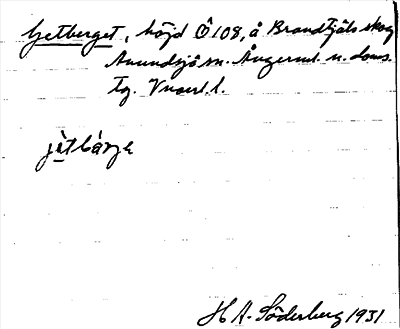 Getberget, höjd Ö 108, å Brandfjäls skog
Anundsjö sn. Ångerml. n. doms.
tg. Vnorrl. l.
jètbárje
H A. Söderberg 1931